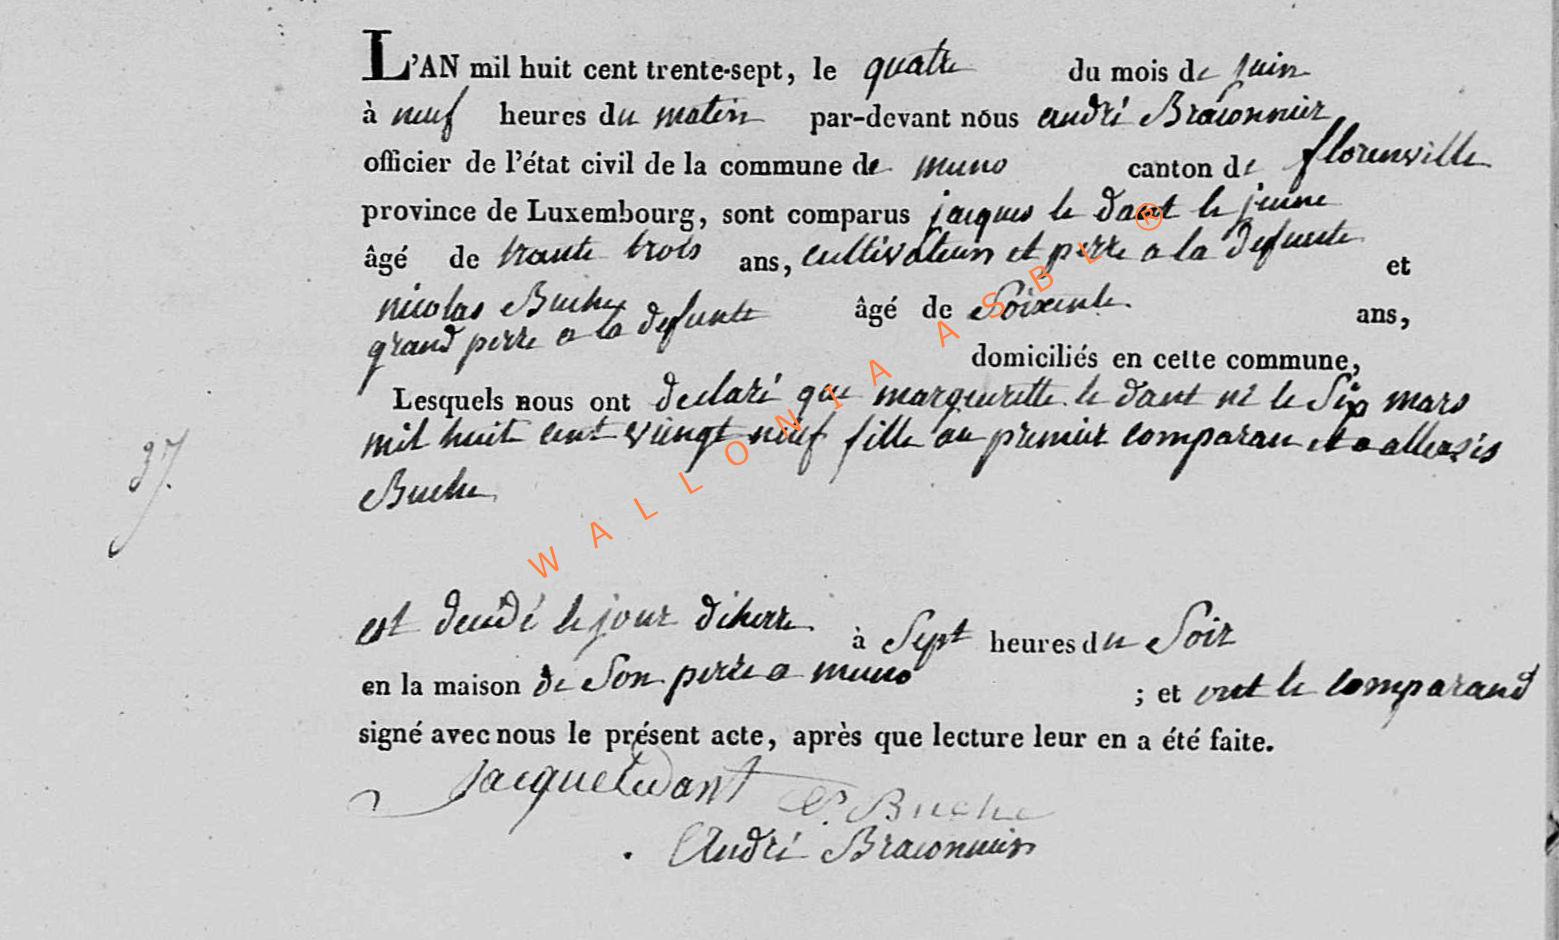 L'AN mil huit cent trente-sept, le quatre du mois de juin
à neuf heures du matin par-devant nous andré Braconnier
officier de l'état civil de la commune de muno canton de florenville
province de Luxembourg, sont comparus jacques le dant le jeune
âgé de trante trois ans, cultivateur et perre a la defunte et
nicolas Buche âgé de Soixente ans,
grand perre a la defunte
domiciliés en cette commune,
Lesquels nous ont declaré que marguerette le dant né le Six mars
mil huit cent vüingt neuf fille au premier comparan et a
Buche
37.
est decidé le jour diherre à Sept heures du Soir
en la maison de Son perre a muno ; et ont le comparand
signé avec nous le présent acte, après que lecture leur en a été faite.
jacque ledant Buche
André Braconnier
WALLONIA ASBL ®